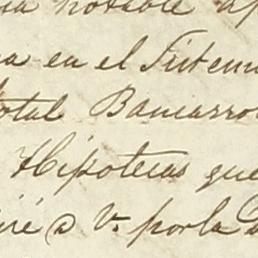 notable ap
a en el Sistem
total Bancarro
Hipotecas que
iré a V. por la